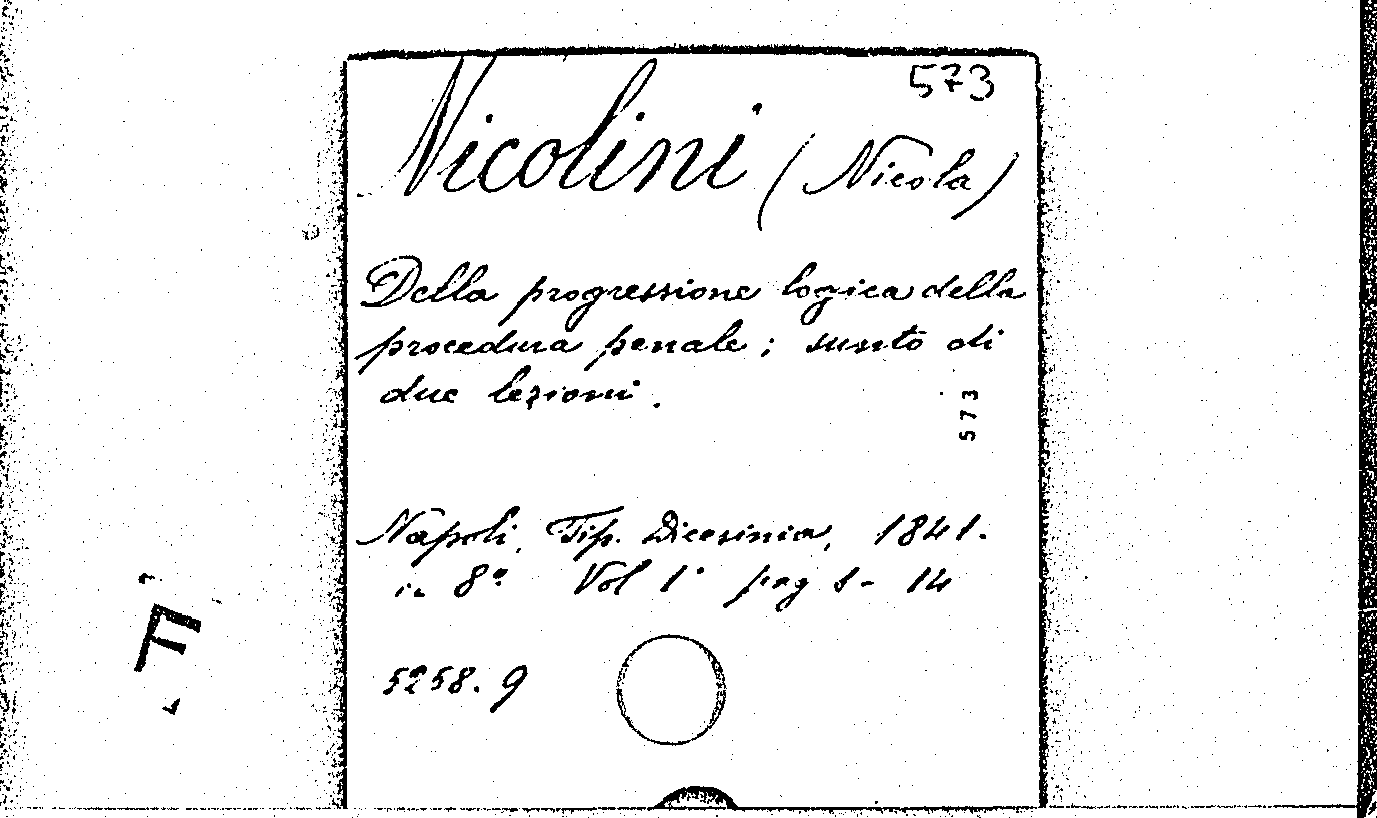 573
Nicolini (Nicola)
Della progressione logica della
procedura penale; sunto di
due lezioni.
573
Napoli, Tip. Dicesinia, 1841.
in 8° Vol 1° pag 1 - 14
F
5258. 9